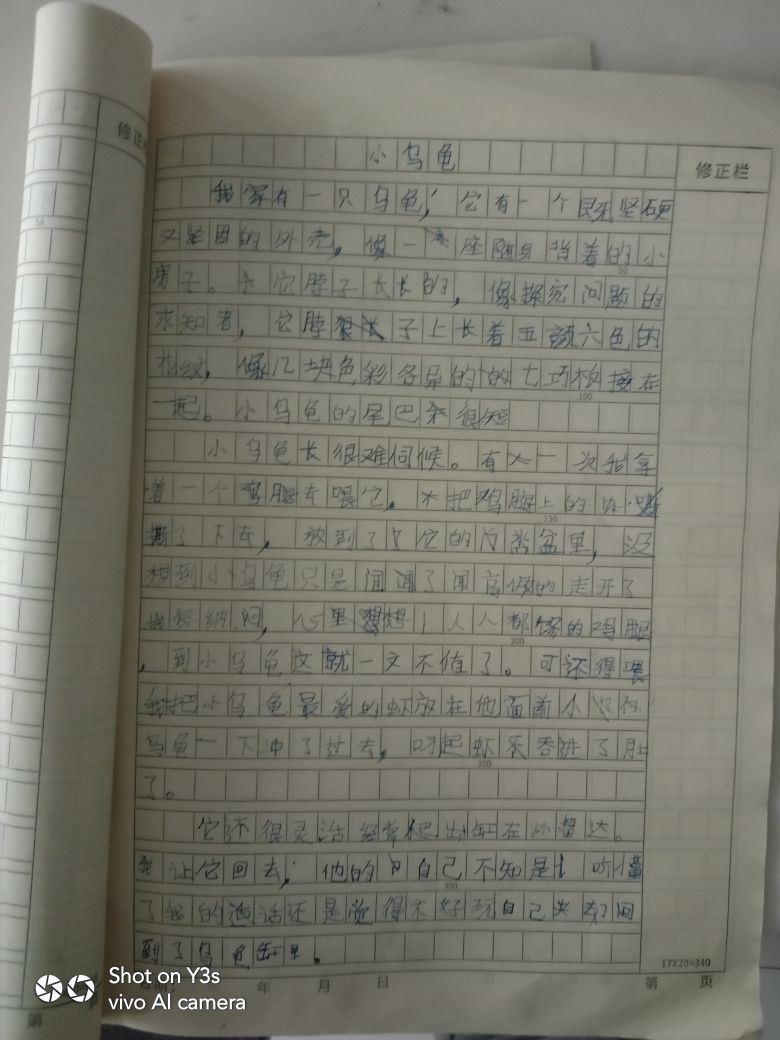 小乌龟
修正栏
修正
我家有一只乌龟，它有一个既坚硬
又坚固的外壳，像一座随身背着的小
房子。它脖子长长的，像探究问题的
求知者，它脖子上长着五颜六色的
花纹，像几块色彩各异的的七巧板接在
一起。小乌龟的尾巴很短
小乌龟长很难伺候。有一次我拿
着一个鸡腿去喂它，把鸡腿上的肉
撕了下去，放到了它的盆里，没
想到小乌龟只是闻了闻的走开了
我很纳闷，心里想人人都馋的鸡腿
，到小乌龟这就一文不值了。可还得喂
我把小乌龟最爱的虾放在他面前小
乌龟一下冲了过去，叼起虾吞进了肚
了。
它还很灵活经常爬出缸在外溜达。
我让它回去，他的自己不知是听懂
了我的话还是觉得不好玩自己回
到了乌龟缸里。
50
50
100
150
200
250
300
17×20=340
年 月 日 第 页
第
Shot on Y3s
vivo AI camera